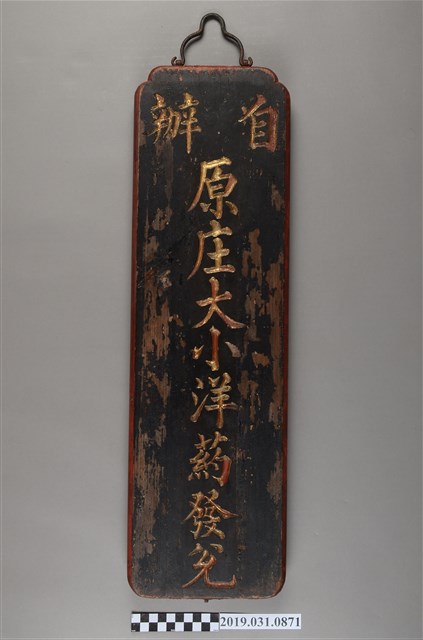 自辦
原庄大小洋葯發兌
2019.031.0871